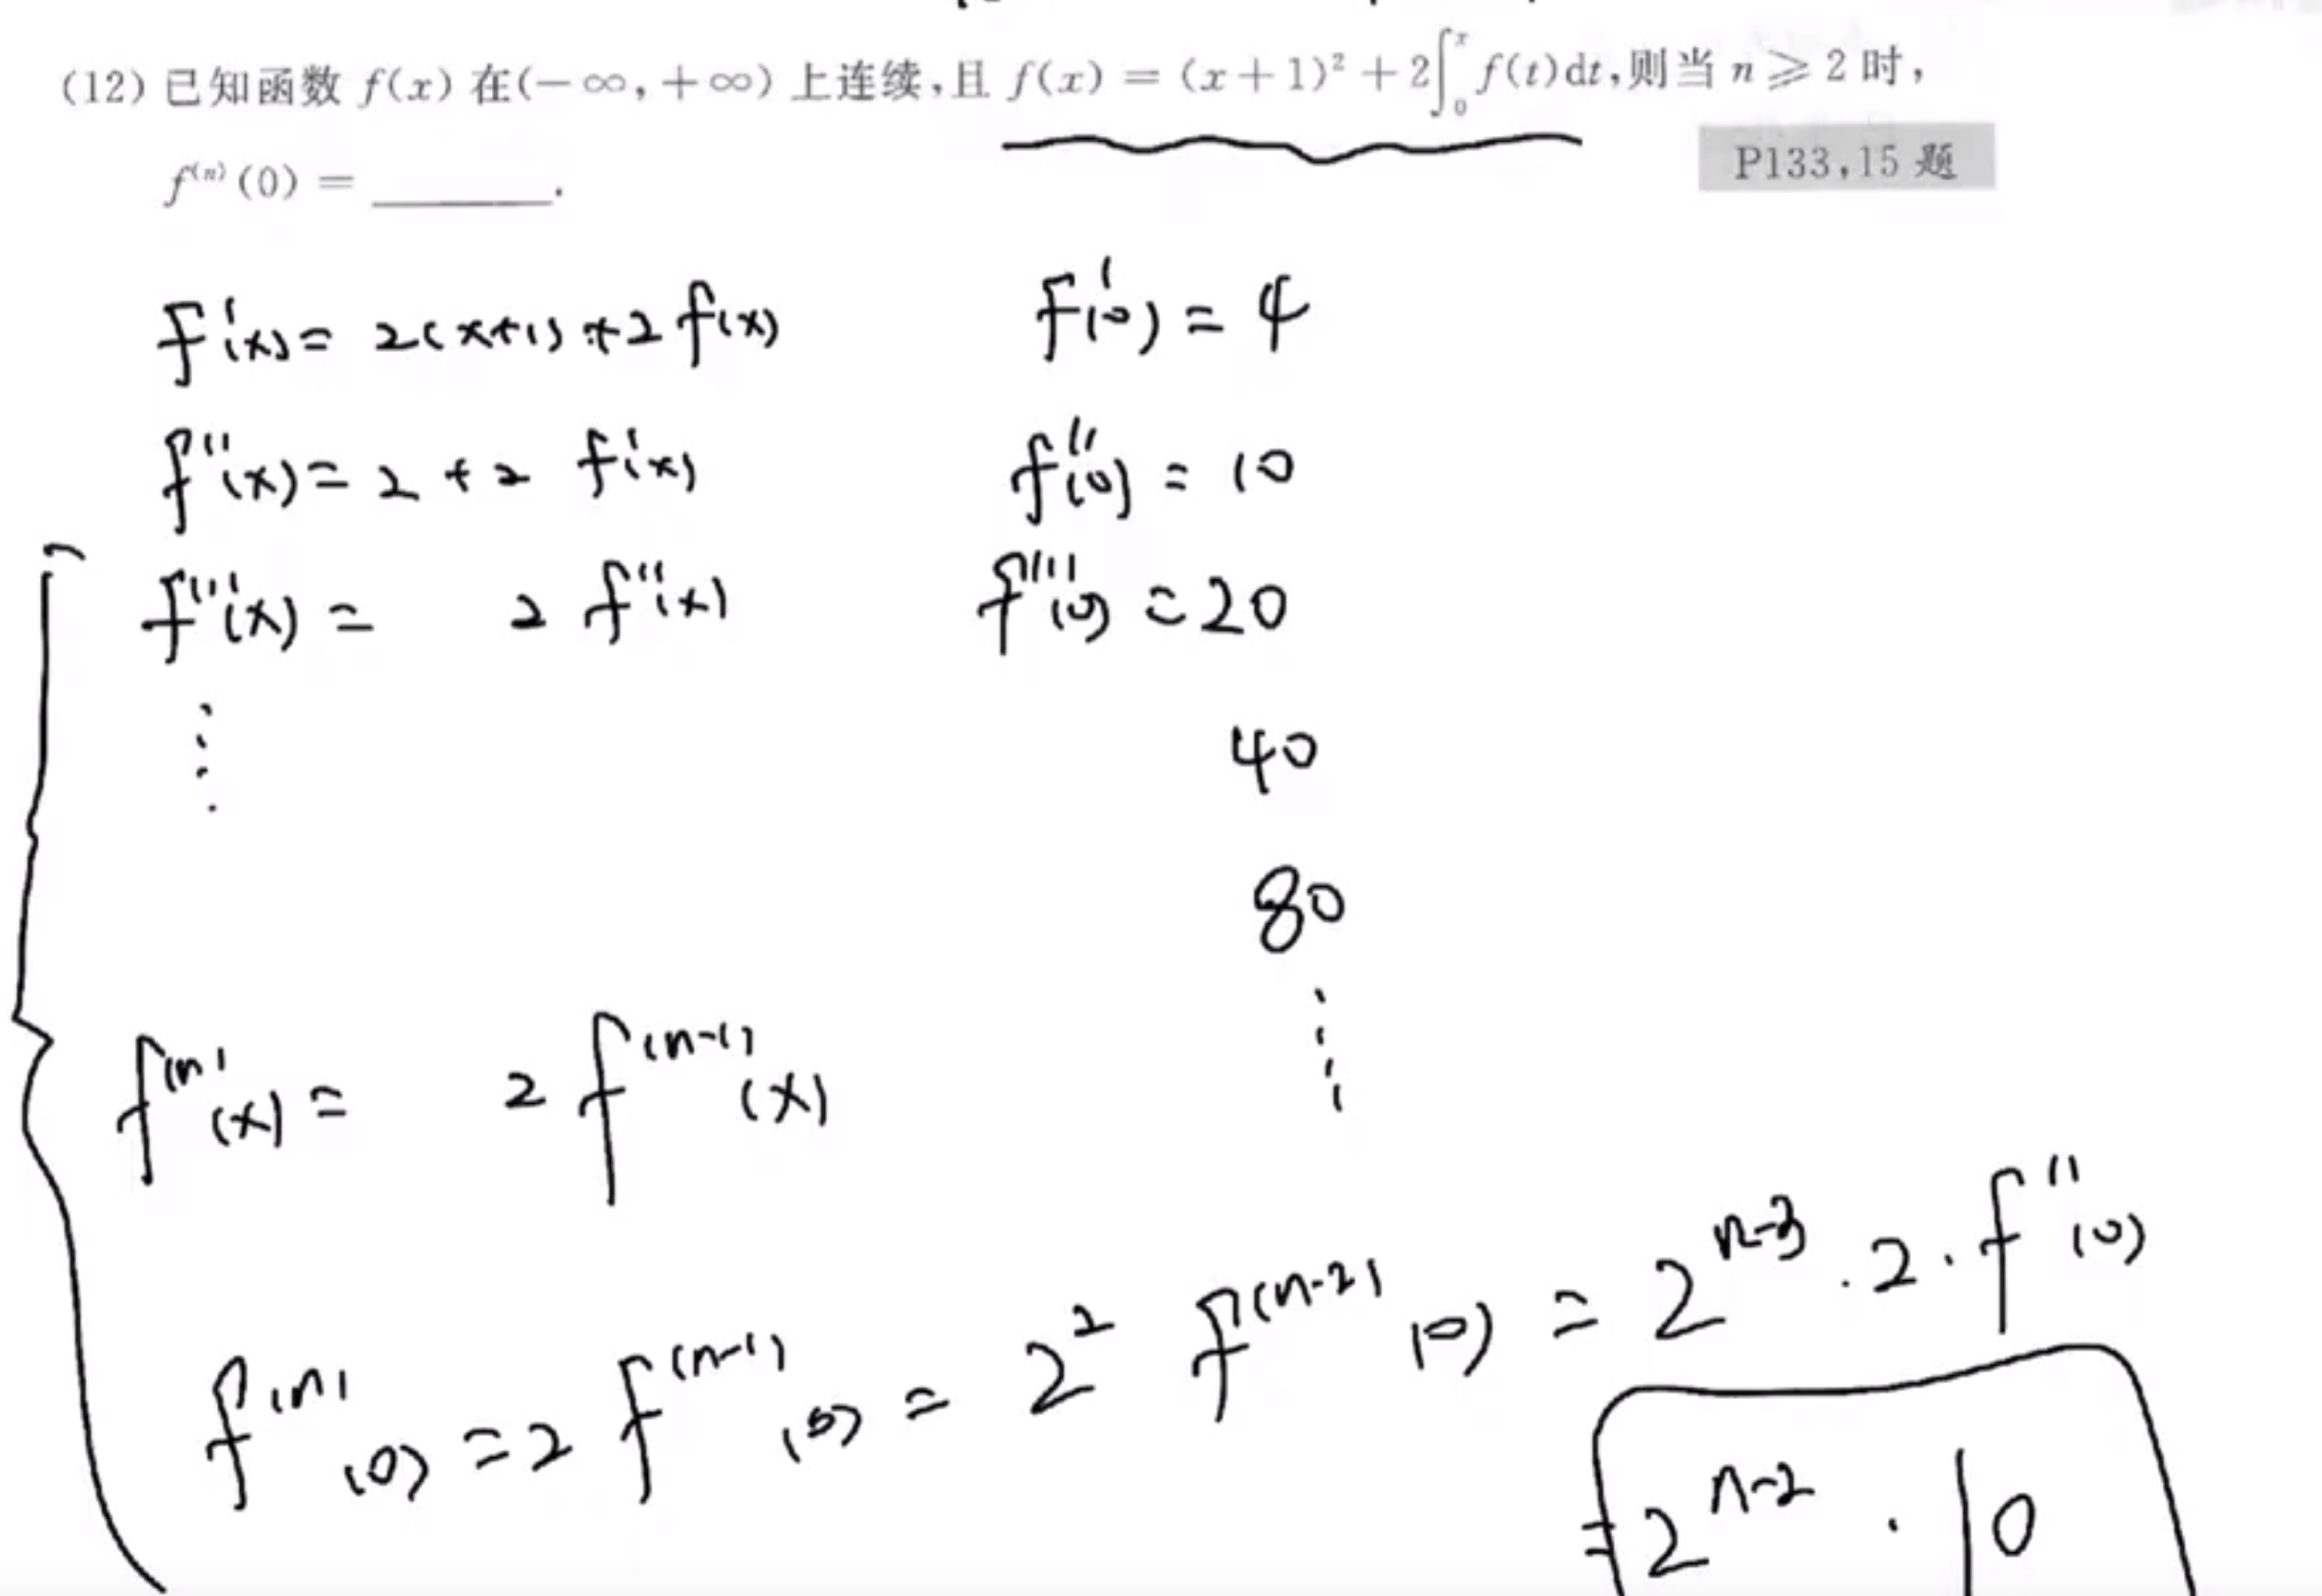 (12) 已知函数 f(x) 在(-∞,+∞) 上连续,且 f(x) = (x+1)² + 2∫₀ˣ f(t)dt,则当 n ⩾ 2 时,
f⁽ⁿ⁾(0) = ______.
P133,15 题
f'(x) = 2(x+1) + 2f(x) f'(0) = 4
f''(x) = 2 + 2 f'(x) f''(0) = 10
f'''(x) = 2 f''(x) f'''(0) = 20
⋮ 40
80
⋮
f⁽ⁿ⁾(x) = 2 f⁽ⁿ⁻¹⁾(x)
f⁽ⁿ⁾(0) = 2 f⁽ⁿ⁻¹⁾(0) = 2² f⁽ⁿ⁻²⁾(0) = 2ⁿ⁻³ · 2 · f''(0)
= 2ⁿ⁻² · 10